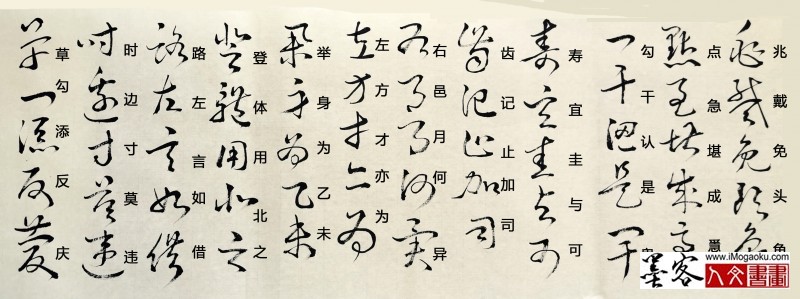 兆戴免头
点急堪成
勾干认是
寿宜圭与可
齿记止加司
右邑月何异
左方才亦为
举身为乙未
登体用北之
路左言如借
时边寸莫违
草勾添反庆
墨客
www.iMogaoku.com
人文書畫